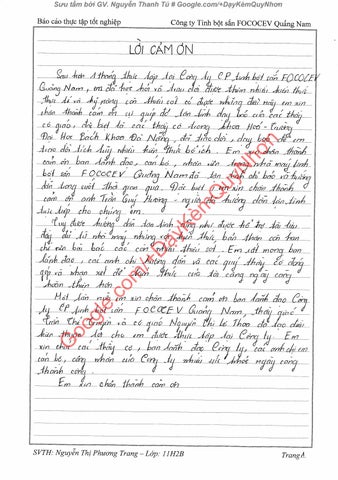 Sưu tầm bởi GV. Nguyễn Thanh Tú # Google.com/+DạyKèmQuyNhơn
Báo cáo thực tập tốt nghiệp Công ty Tinh bột sắn FOCOCEV Quảng Nam
LỜI CẢM ƠN
Sau hơn 1 tháng thực tập tại Công ty CP tinh bột sắn FOCOCEV
Quảng Nam, em đã học hỏi và trau dồi được thêm nhiều kiến thức
thực tế và kỹ năng cần thiết để có được những điều này em xin
chân thành cảm ơn sự giúp đỡ tận tình dạy bảo của các thầy
cô giáo, đặc biệt là các thầy cô trong khoa Hoá - Trường
Đại Học Bách Khoa Đà Nẵng, đã dạy bảo để em
trau dồi tích luỹ nhiều kiến thức bổ ích. Em xin chân thành
cảm ơn ban lãnh đạo, cán bộ, nhân viên nhà máy tinh
bột sắn FOCOCEV Quảng Nam đã tận tình chỉ bảo và hướng
dẫn trong suốt thời gian qua. Đặc biệt em xin chân thành
cảm ơn anh Trần Quý Hương - người hướng dẫn tận tình
trực tiếp cho chúng em.
Tuy được hướng dẫn tận tình cũng như được hỗ trợ tài liệu
đầy đủ từ nhà máy nhưng kiến thức bản thân còn hạn
chế nên bài báo cáo còn nhiều thiếu sót. Em rất mong ban
lãnh đạo, các anh chị hướng dẫn và các quý thầy cô đóng
góp và nhận xét để kiến thức của tôi càng ngày càng
hoàn thiện hơn.
Một lần nữa em xin chân thành cảm ơn ban lãnh đạo Công
ty CP tinh bột sắn FOCOCEV Quảng Nam, thầy giáo
Trần Thế Truyền và cô giáo Nguyễn Thị Lê Thảo đã tạo điều
kiện thuận lợi cho em được thực tập tại Công ty. Em
xin chúc các thầy cô, ban lãnh đạo Công ty, các anh chị em
cán bộ, công nhân của Công ty nhiều sức khoẻ ngày càng
thành công.
Em xin chân thành cảm ơn
Google.com/+DạyKèmQuyNhơn
SVTH: Nguyễn Thị Phương Trang – Lớp: 11H2B Trang